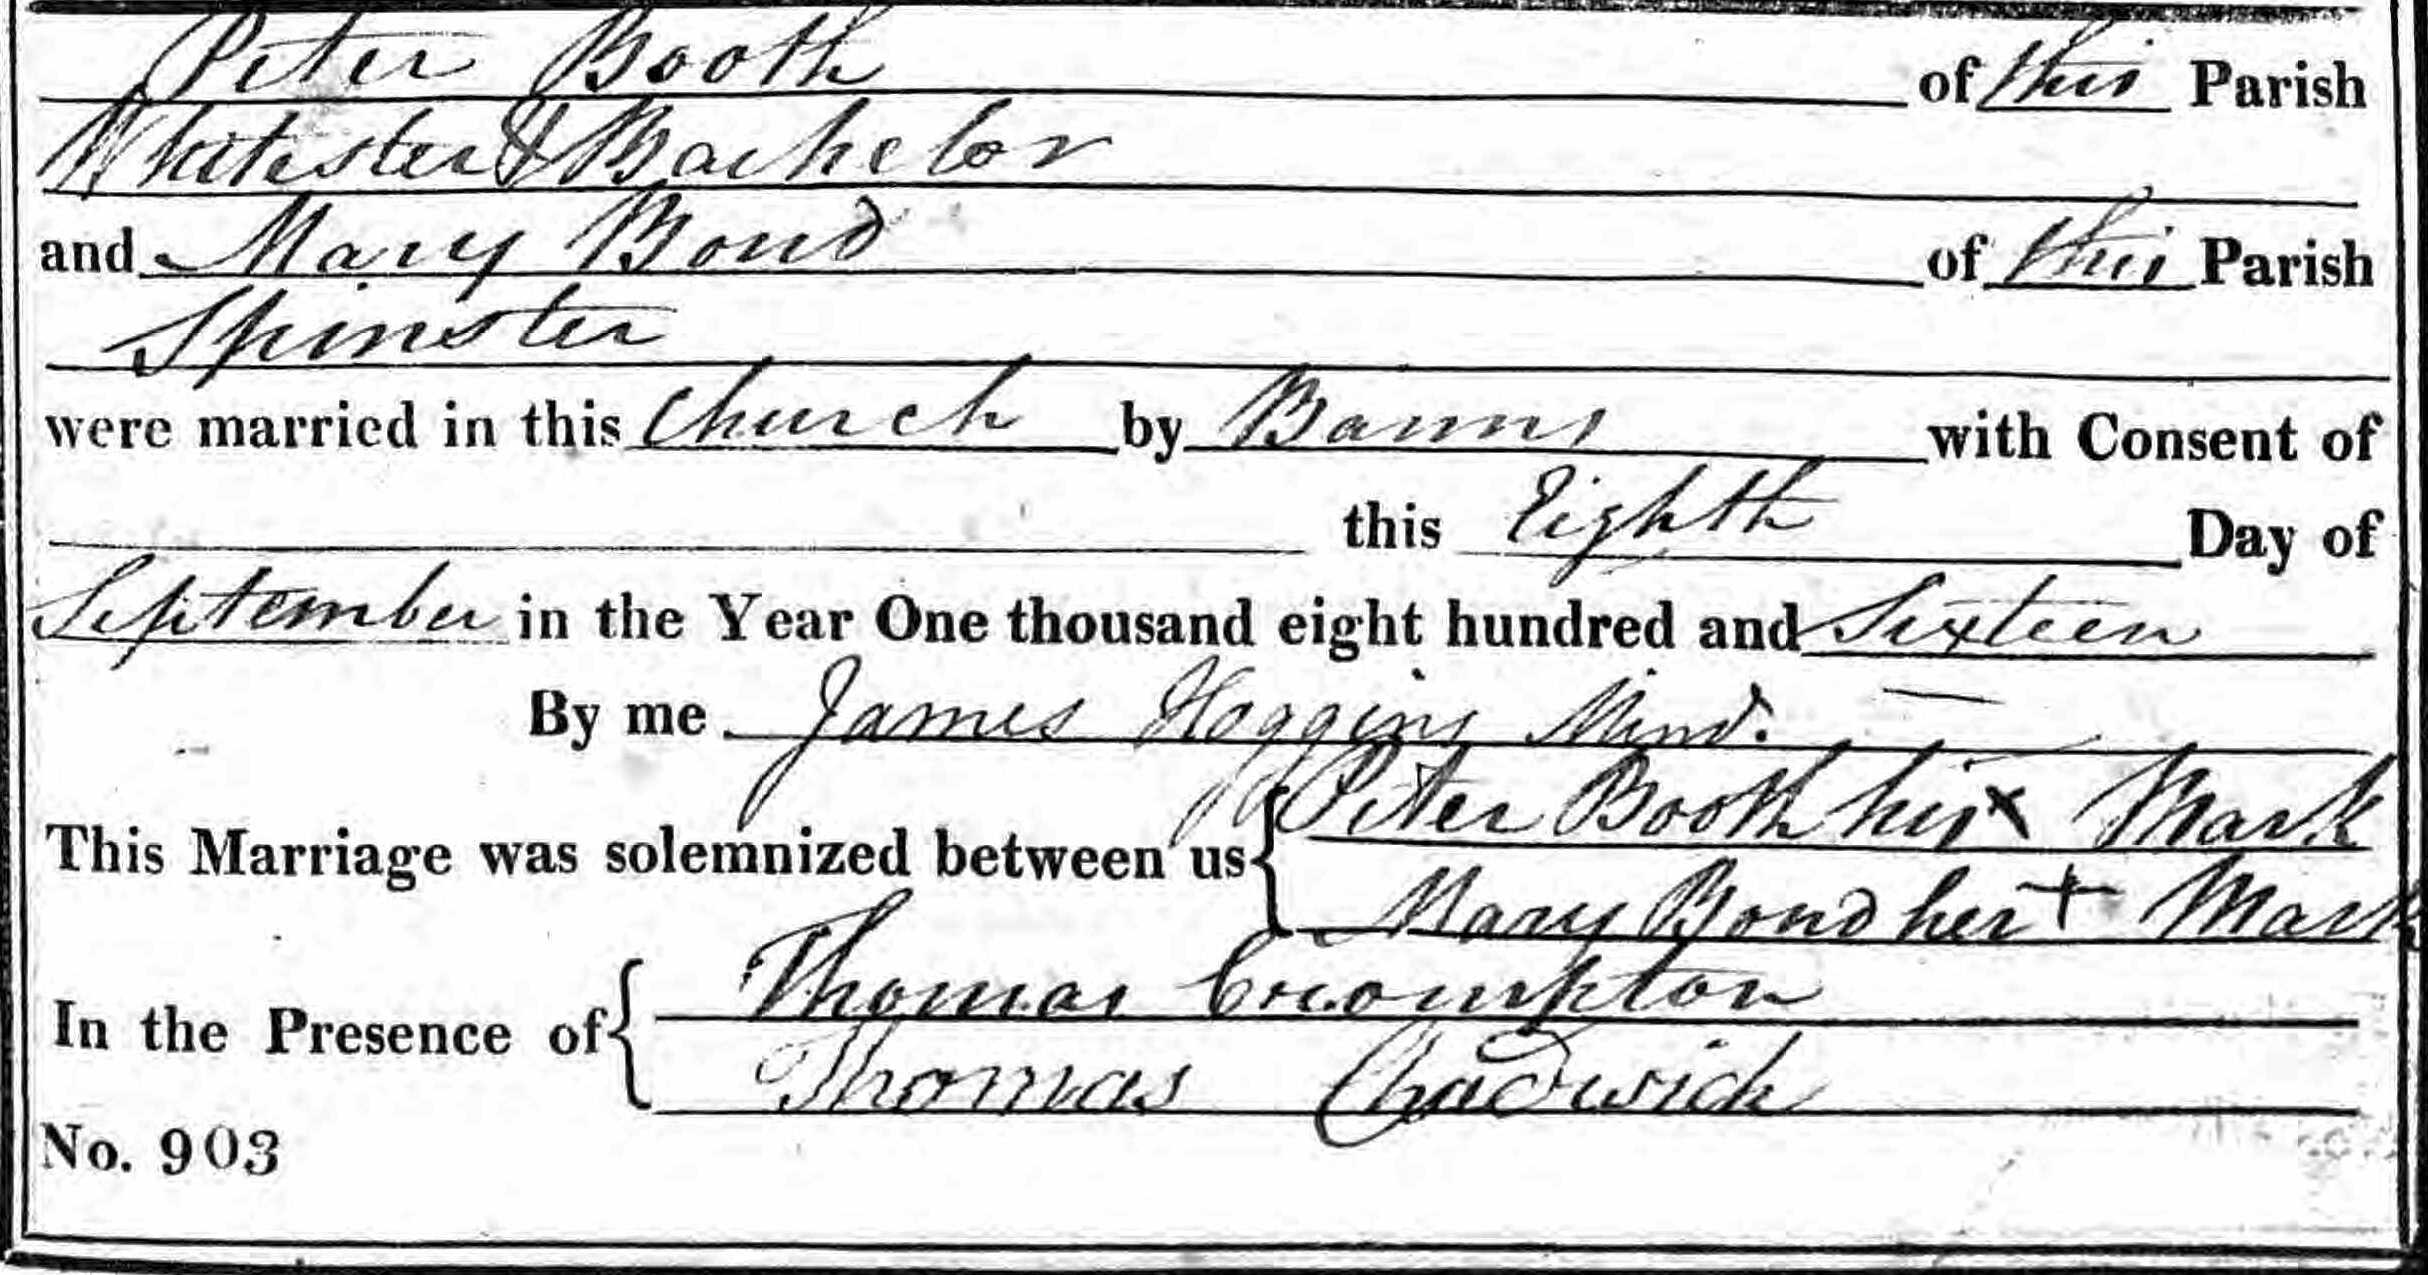 Peter Booth of this Parish
Whitester & Bachelor
and Mary Bond of this Parish
Spinster
were married in this Church by Banns with Consent of
this Eighth Day of
September in the Year One thousand eight hundred and Sixteen
By me James Hoggins Minr.
This Marriage was solemnized between us { Peter Booth his x Mark
Mary Bond her + Mark
In the Presence of { Thomas Crompton
Thomas Chadwick
No. 903